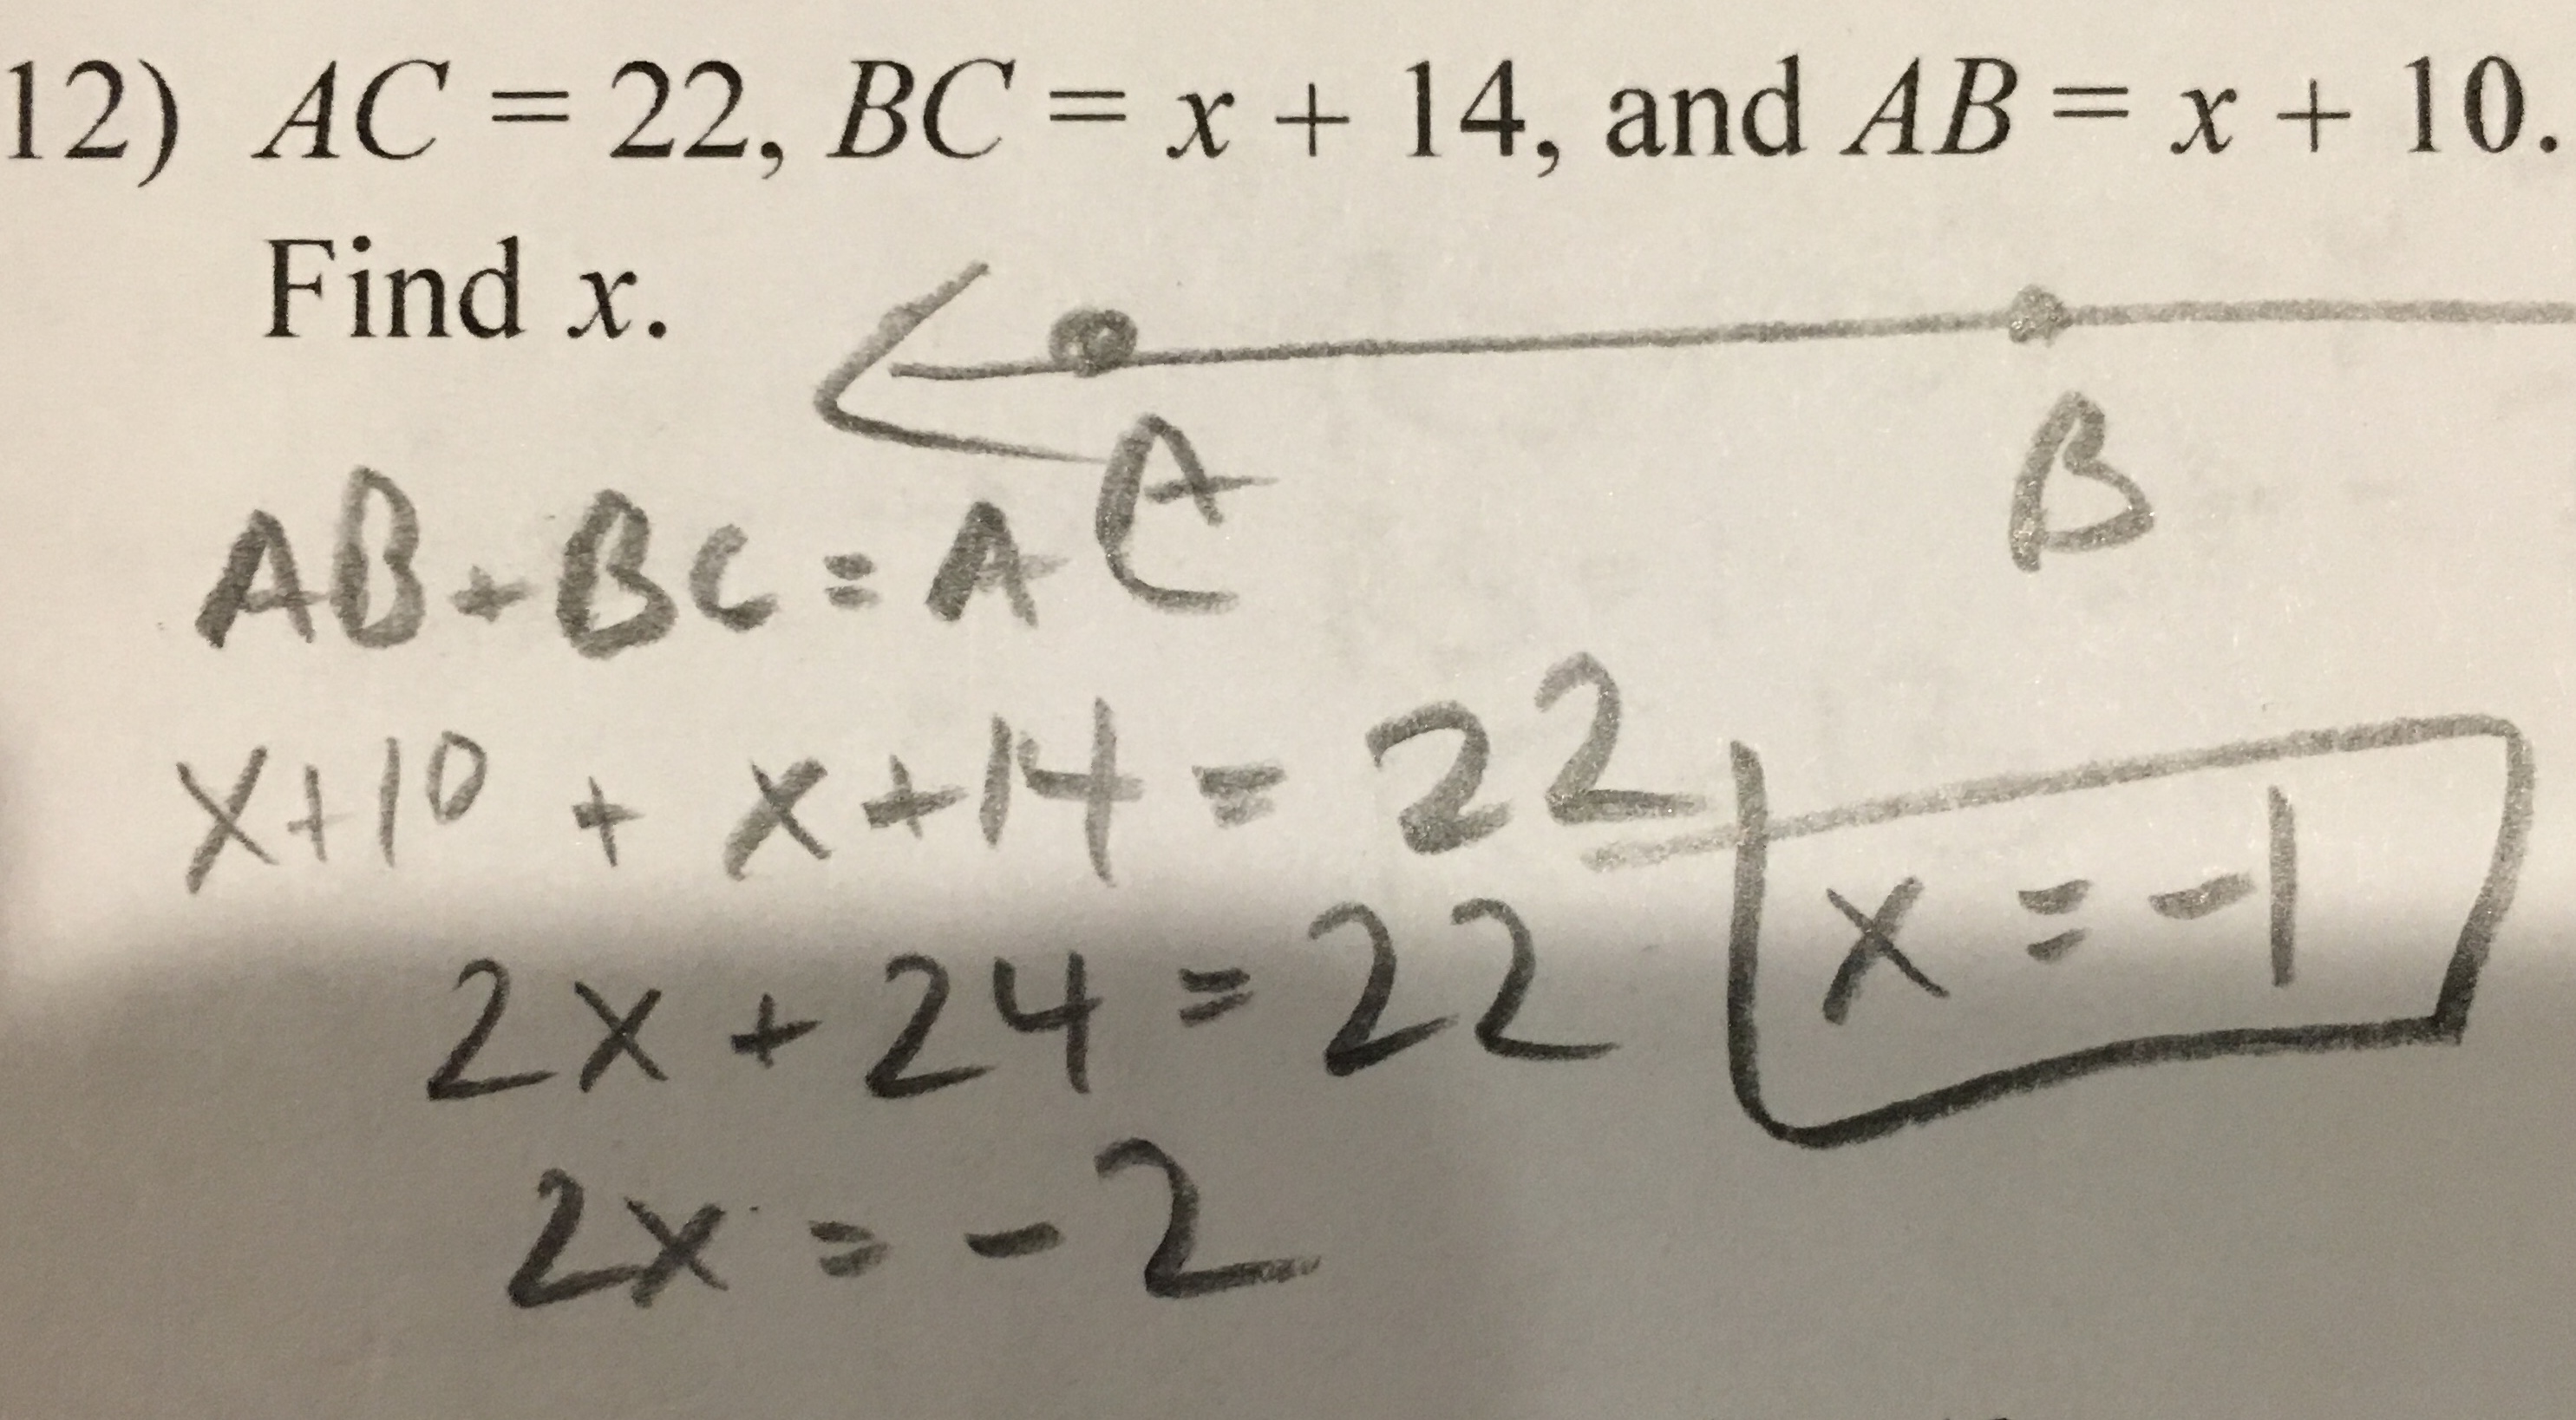 12) AC = 22, BC = x + 14, and AB = x + 10.
Find x.
A B
AB + BC = AC
x+10 + x+14 = 22
2x + 24 = 22
2x = -2
x = -1